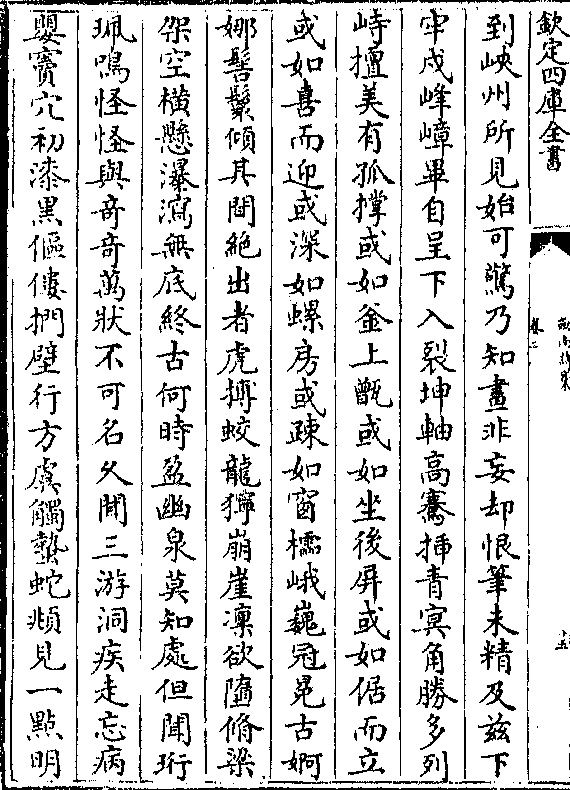 欽定四庫全書
卷二
到峽州所見始可驚乃知畫非妄却恨筆未精及兹下
牢戍峰嶂畢自呈下入裂坤軸高騫揷青冥角勝多列
峙擅美有孤撑或如釜上甑或如坐後屏或如倨而立
或如喜而迎或深如螺房或疎如窗櫺峨巍冠冕古婀
娜髻鬟傾其間絶出者虎搏蛟龍獰崩崖凜欲墮脩梁
架空横懸瀑瀉無底終古何時盈幽泉莫知處但聞珩
珮鳴怪怪與竒竒萬狀不可名久聞三游洞疾走忘病
嬰竇穴初漆黒傴僂捫壁行方虞觸蟄蛇頫見一點明